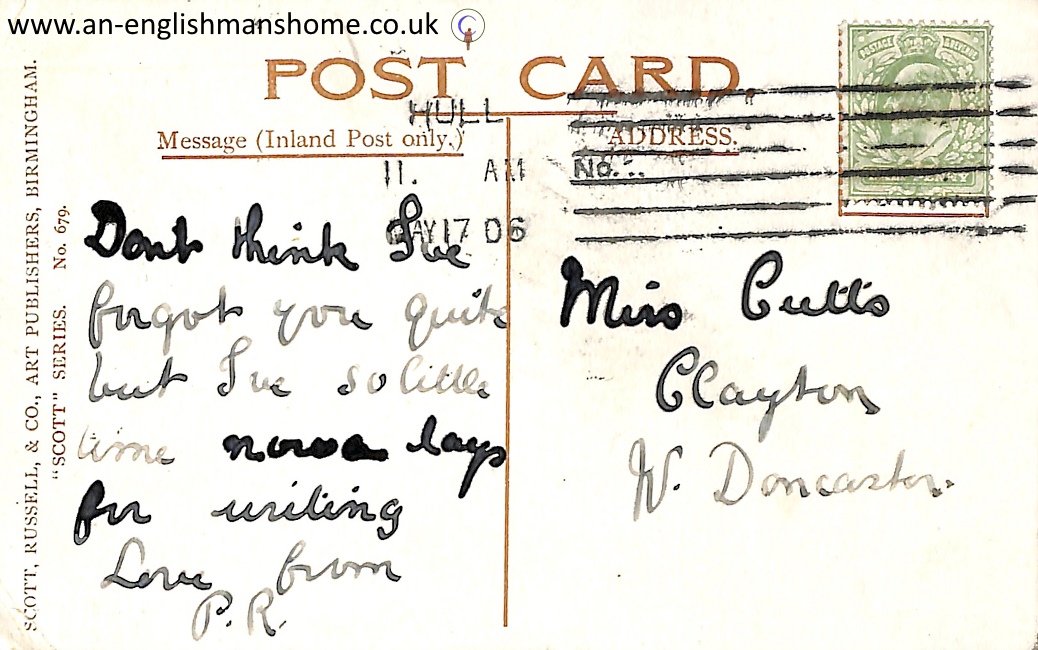 www.an-englishmanshome.co.uk
POST CARD.
HULL
Message (Inland Post only.)
ADDRESS.
11. AM
No.
MAY 17 06
Dont think I've
forgot you quite
but I've so little
time nowa days
for writing
Love from
P. R.
Miss Cutts
Clayton
W. Doncaster.
SCOTT, RUSSELL, & CO., ART PUBLISHERS, BIRMINGHAM.
"SCOTT" SERIES. No. 679.
POSTAGE REVENUE